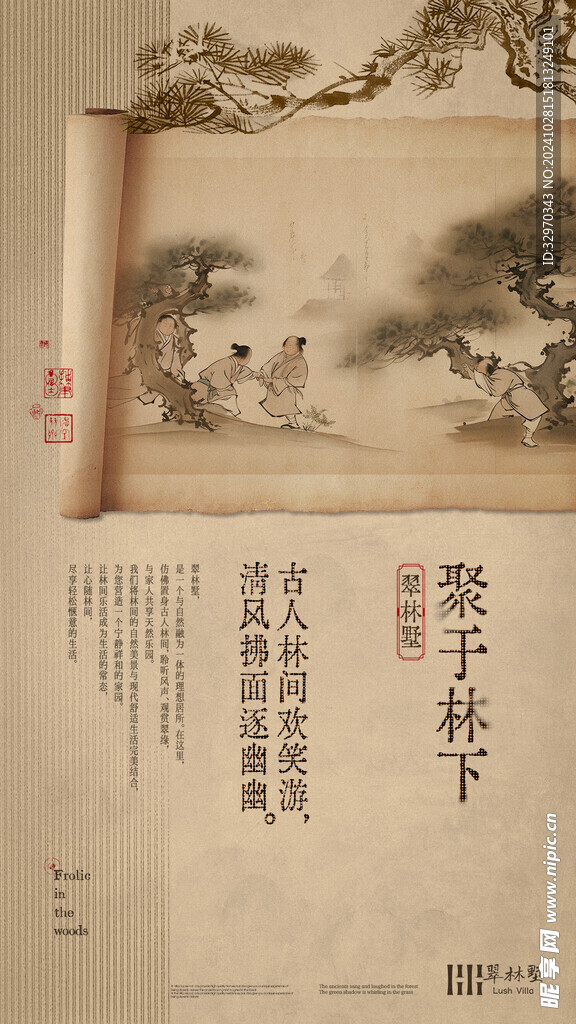 ID:32970343 NO:20241028151813249101
聚于林下
翠林墅
古人林间欢笑游，
清风拂面逐幽幽。
翠林墅，
是一个与自然融为一体的理想居所。在这里，
仿佛置身古人林间，聆听风声、观赏翠绿，
与家人共享天然乐园。
我们将林间的自然美景与现代舒适生活完美结合，
为您营造一个宁静祥和的家园。
让林间乐活成为生活的常态，
让心随林间，
尽享轻松惬意的生活。
Frolic
in
the
woods
The ancients sang and laughed in the forest
The green shadow is whistling in the grass.
翠林墅
Lush Villa
昵享网 www.nipic.cn